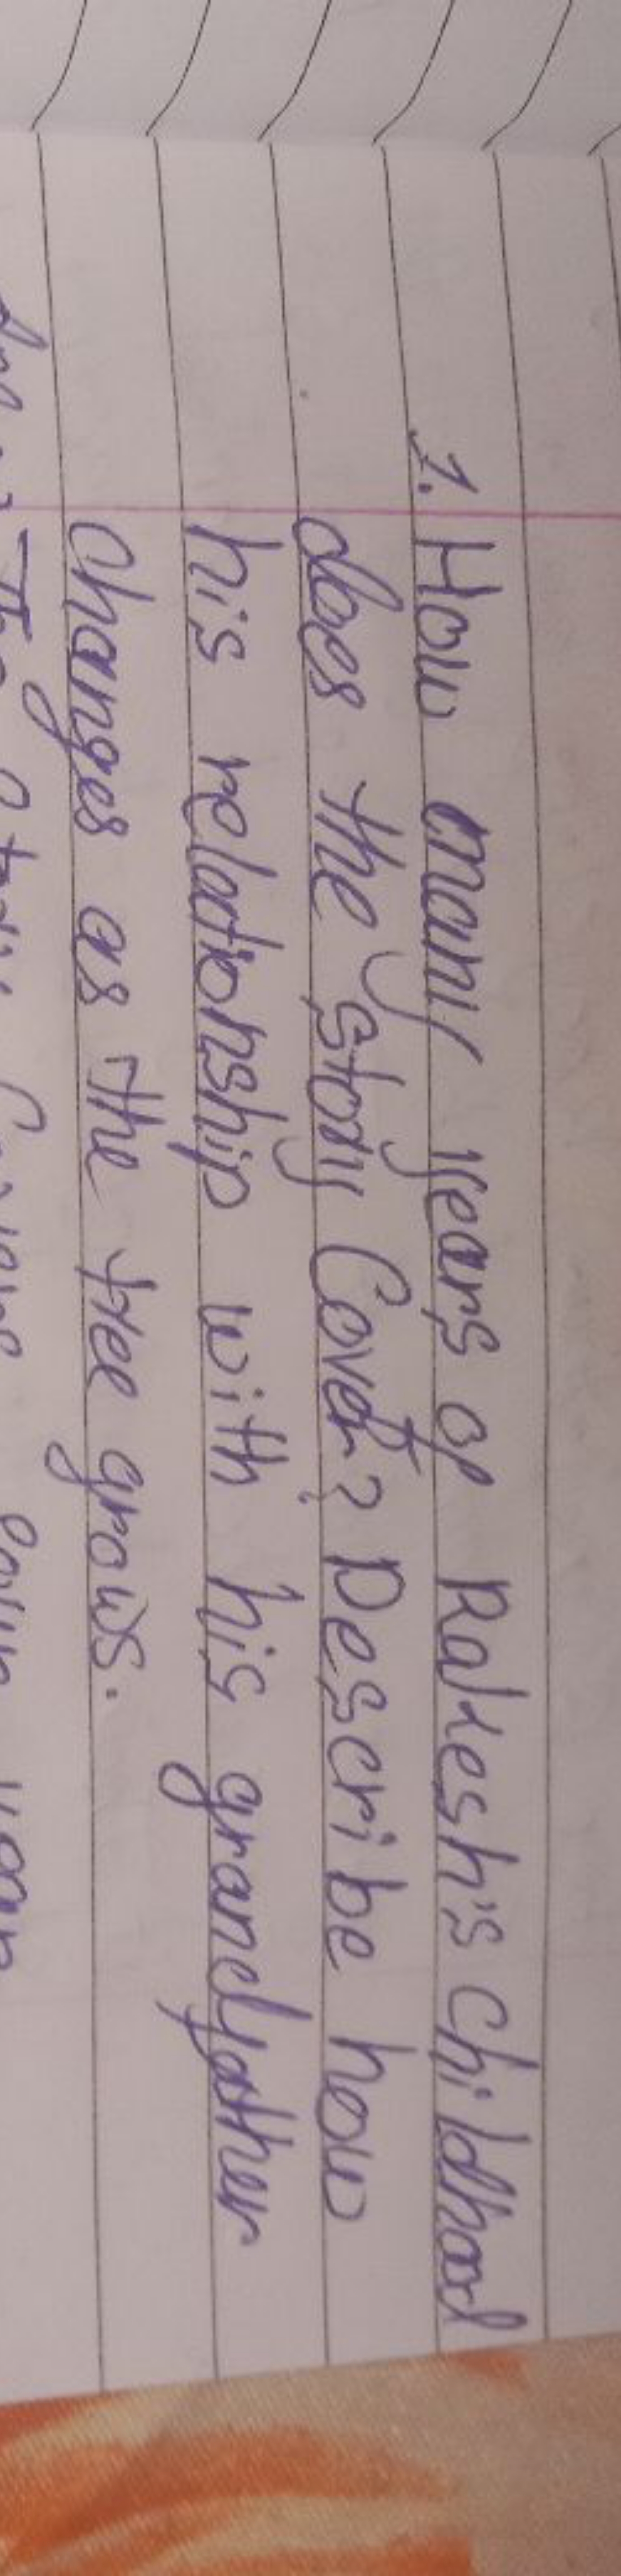 1. How many years of Rakesh's childhood
does the story Cover? Describe how
his relationship with his grandfather
changes as the tree grows.
The Story Covers